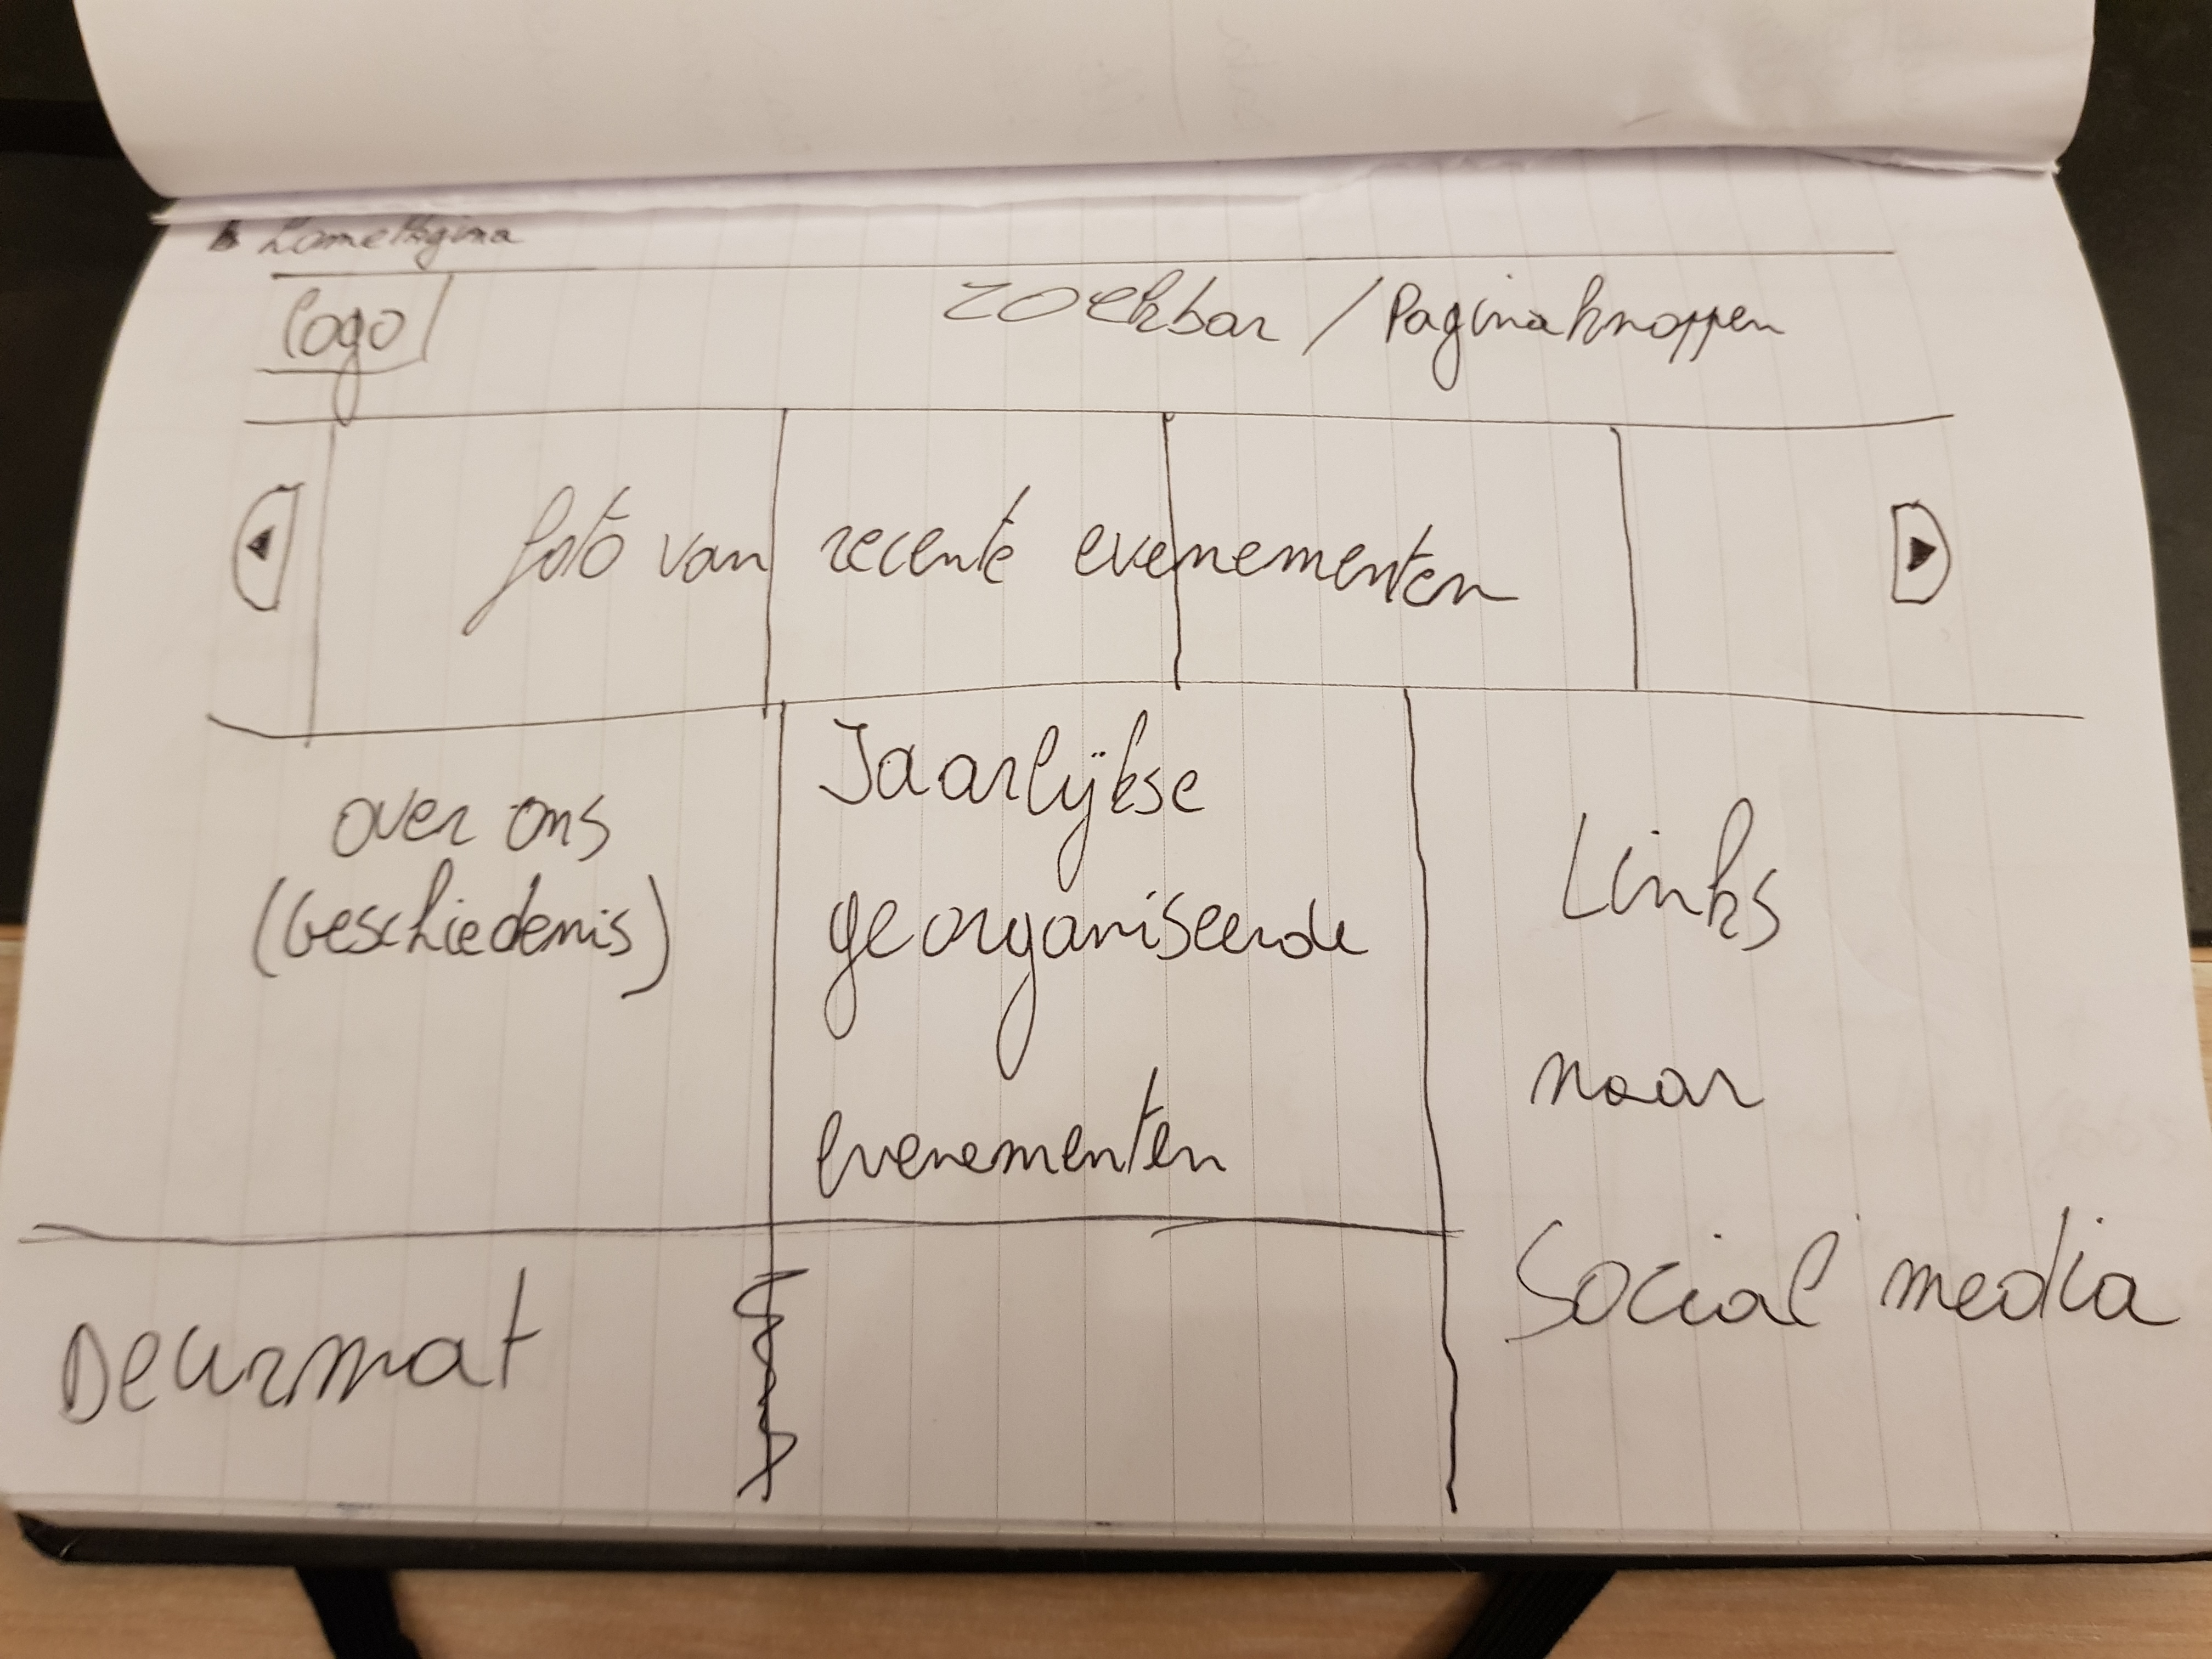 Homepagina
logo
zoekbar / Paginaknoppen
foto van recente evenementen
over ons
(beschiedenis)
Jaarlijkse
georganiseerde
Evenementen
Links
naar
Social media
Deurmat